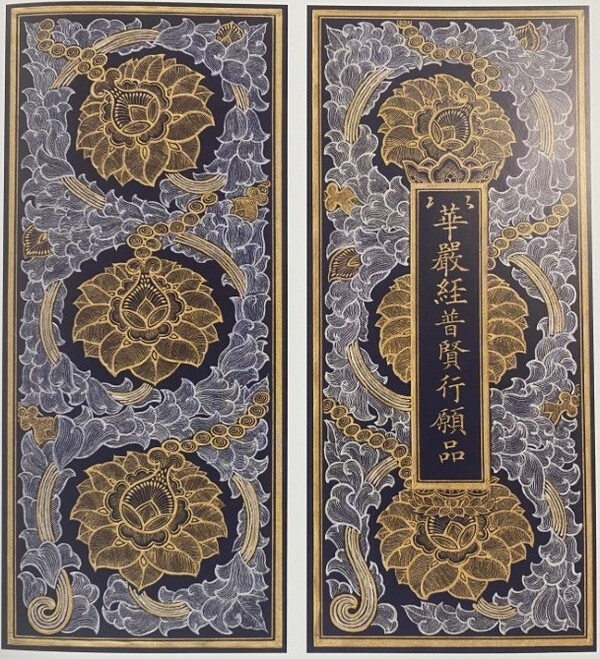 華嚴経普賢行願品